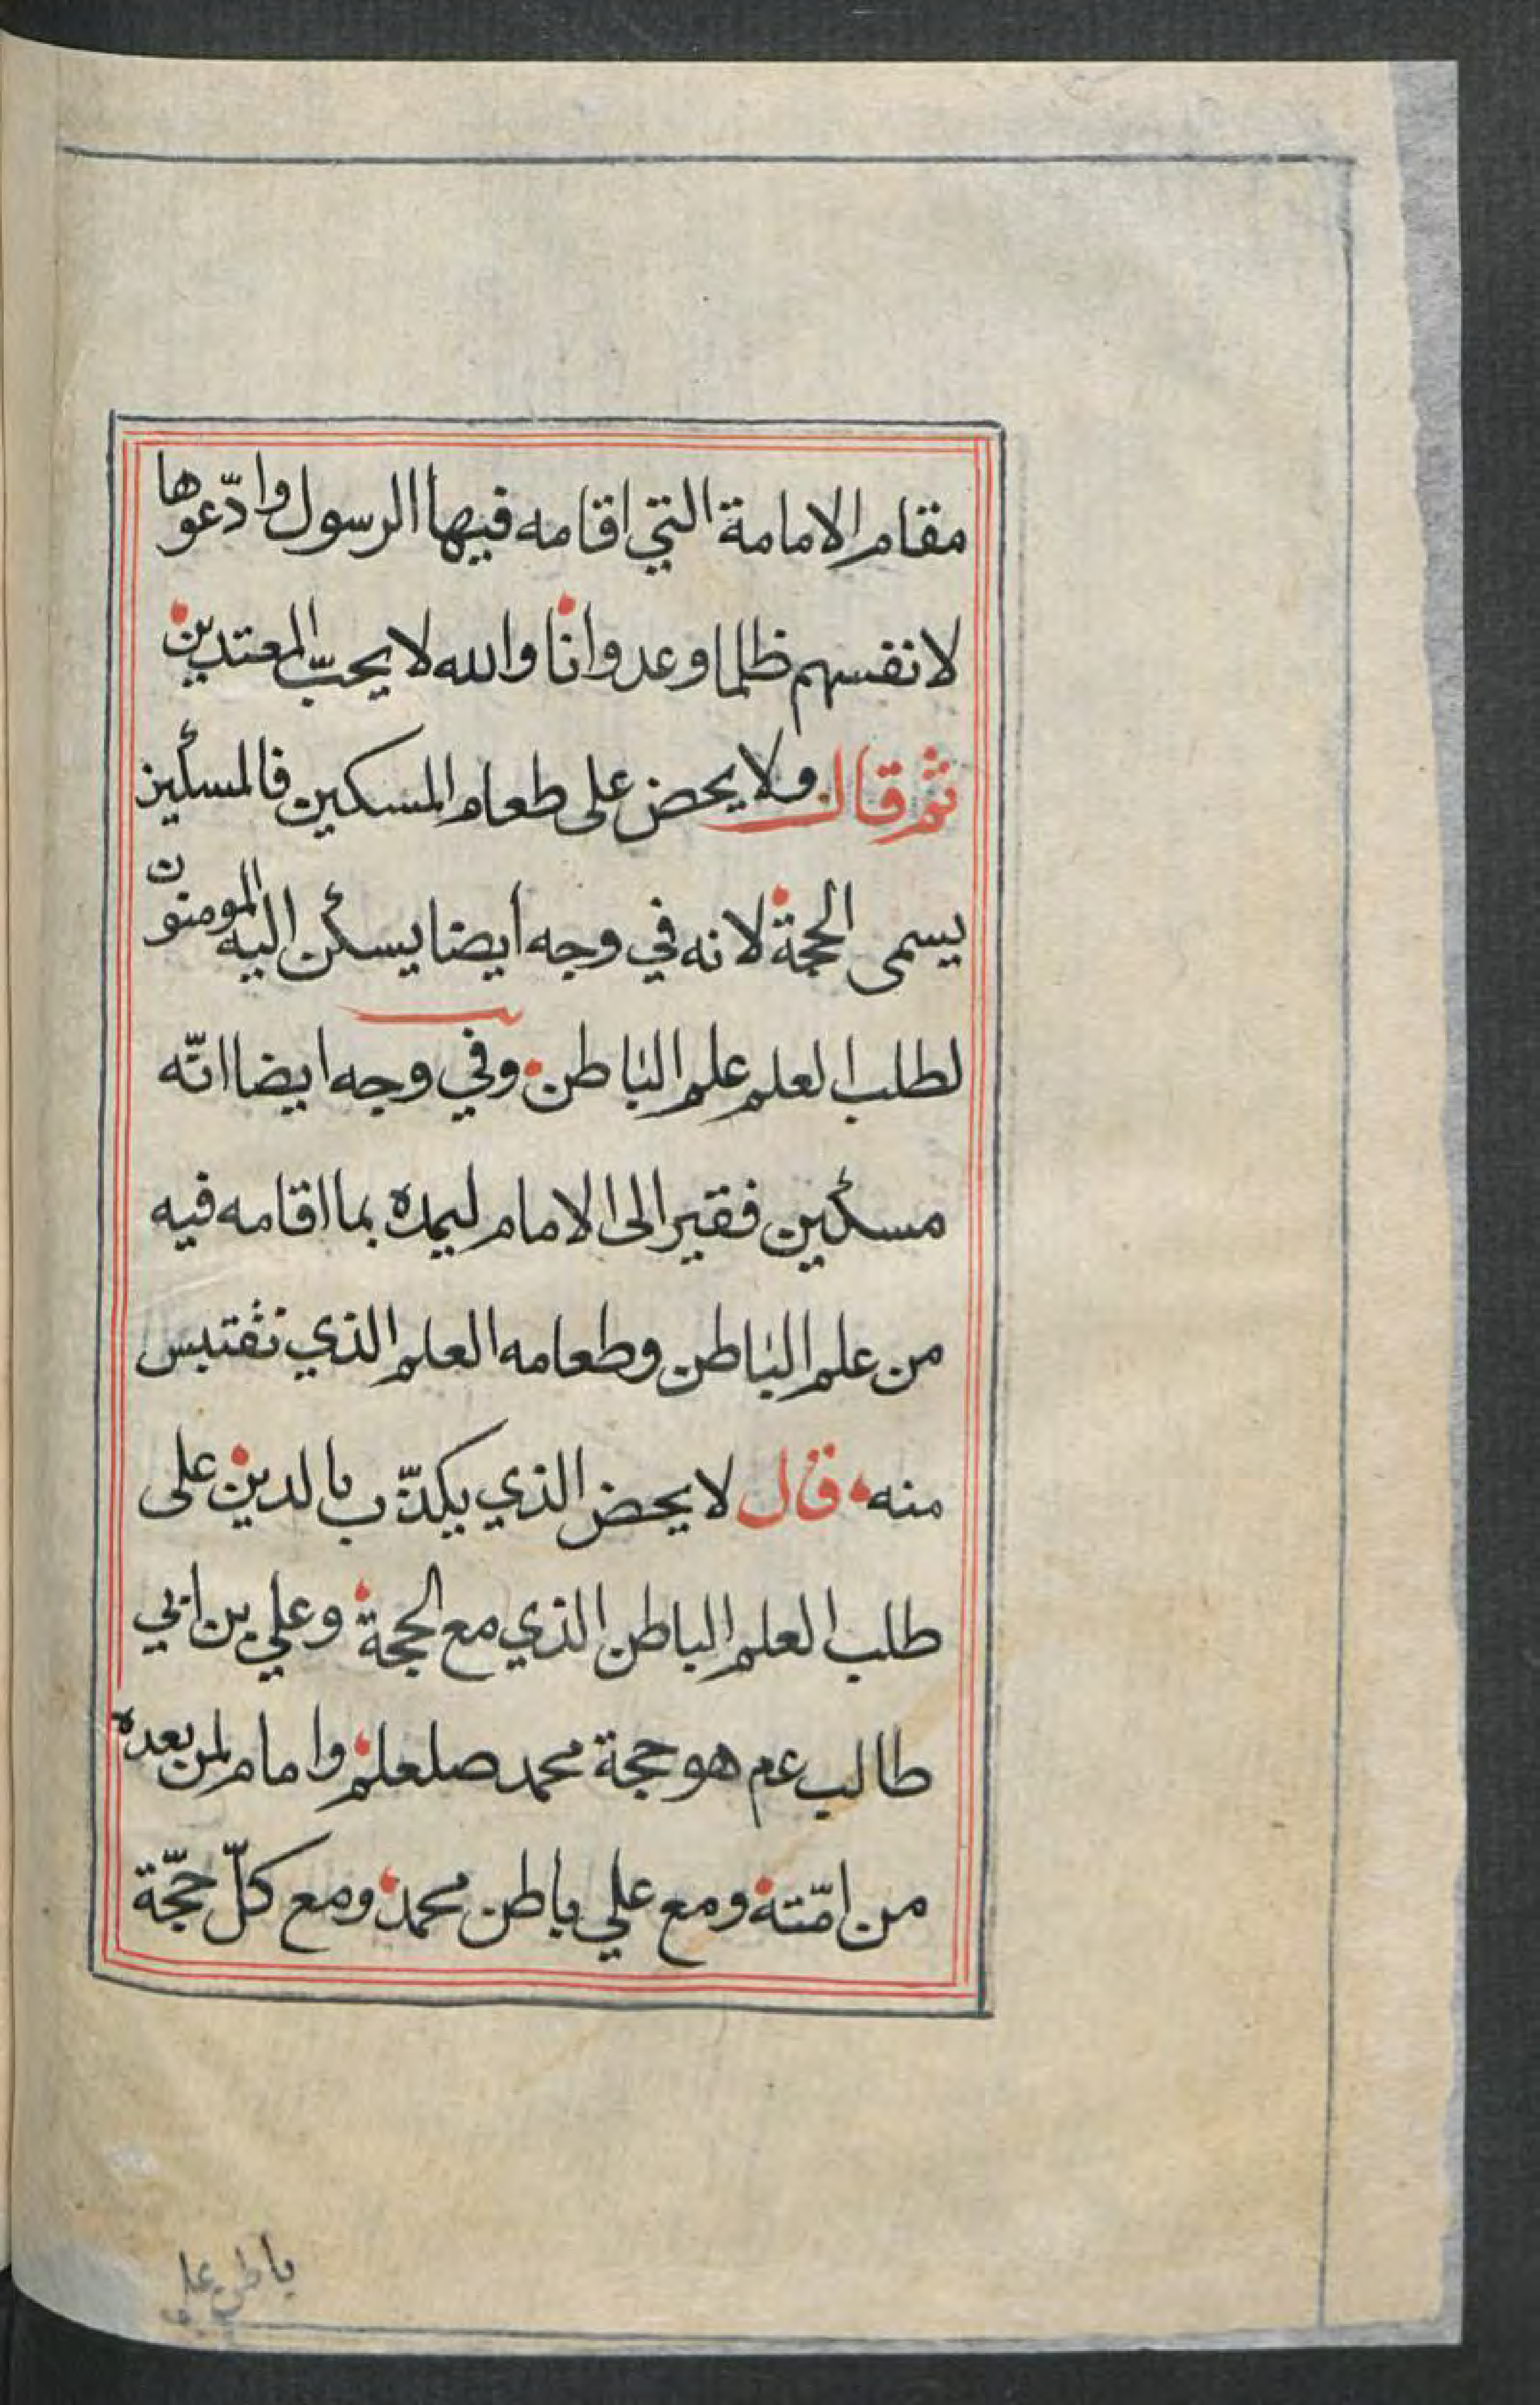 مقام الامامة التي اقامه فيها الرسول وادّعوها
لانفسهم ظلما وعدوانا والله لا يحبّ المعتدين
ثم قال ولا يحض على طعام المسكين فالمسكين
يسمى الحجة لانه في وجه أيضا يسكن اليه المومنون
لطلب العلم علم الباطن وفي وجه ايضا انّه
مسكين فقير الى الامام ليمده بما اقامه فيه
من علم الباطن وطعامه العلم الذي نقتبس
منه قال لا يحض الذي يكذّب بالدين على
طلب العلم الباطن الذي مع الحجة وعلي بن ابي
طالب عم هو حجة محمد صلعلم وامام لمن بعده
من امّته ومع علي باطن محمد ومع كلّ حجّة
باطن علم